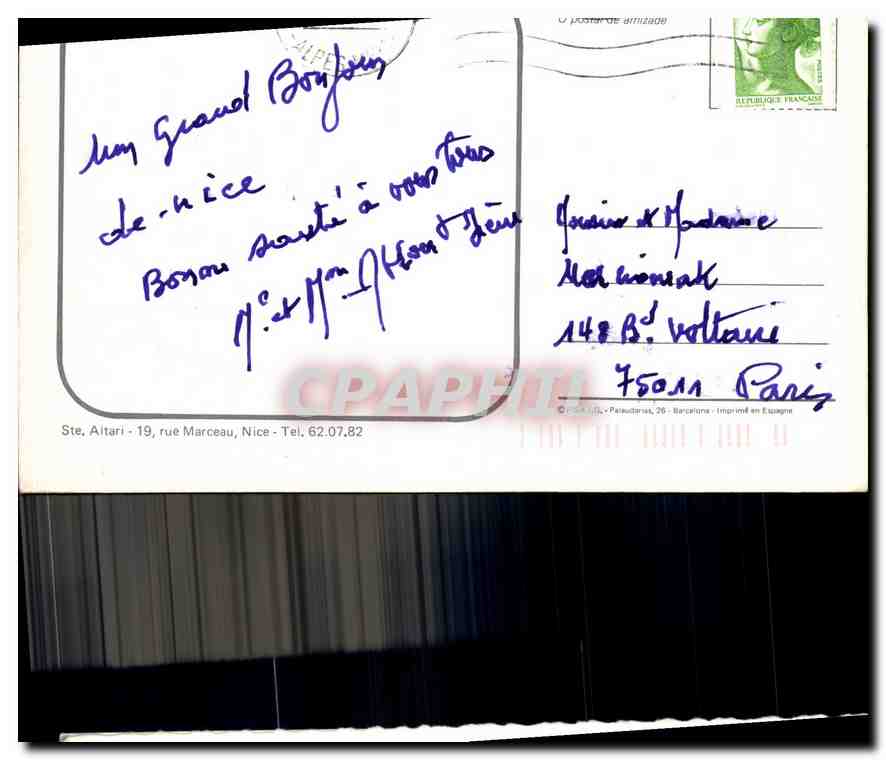 O postal de amizade
ALPES
POSTES
REPUBLIQUE FRANÇAISE
Un Grand Bonjour
de-nice
Bonne santé à vous tous
Mr. et Mme.
Monsieur et Madame
148 Bd. Voltaire
75011 Paris
CPAPHIL
Palaudarias, 26 - Barcelona - Imprimé en Espagne
Ste. Altari - 19, rue Marceau, Nice - Tel. 62.07.82